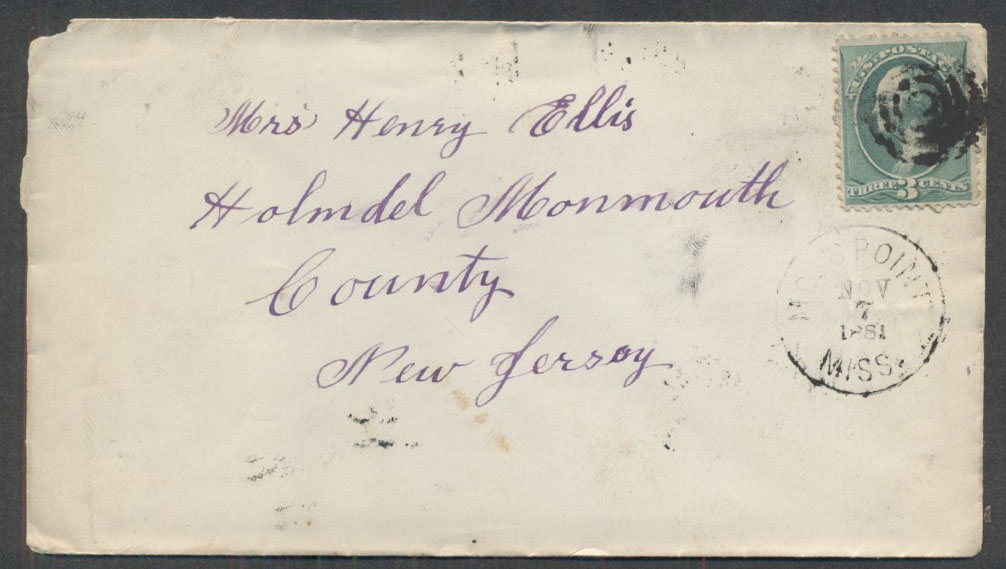 U.S. POSTA
THREE 3 CENTS
Mrs Henry Ellis
Holmdel Monmouth
County
New Jersey
MOSS POINT
NOV
7
1881
MISS.